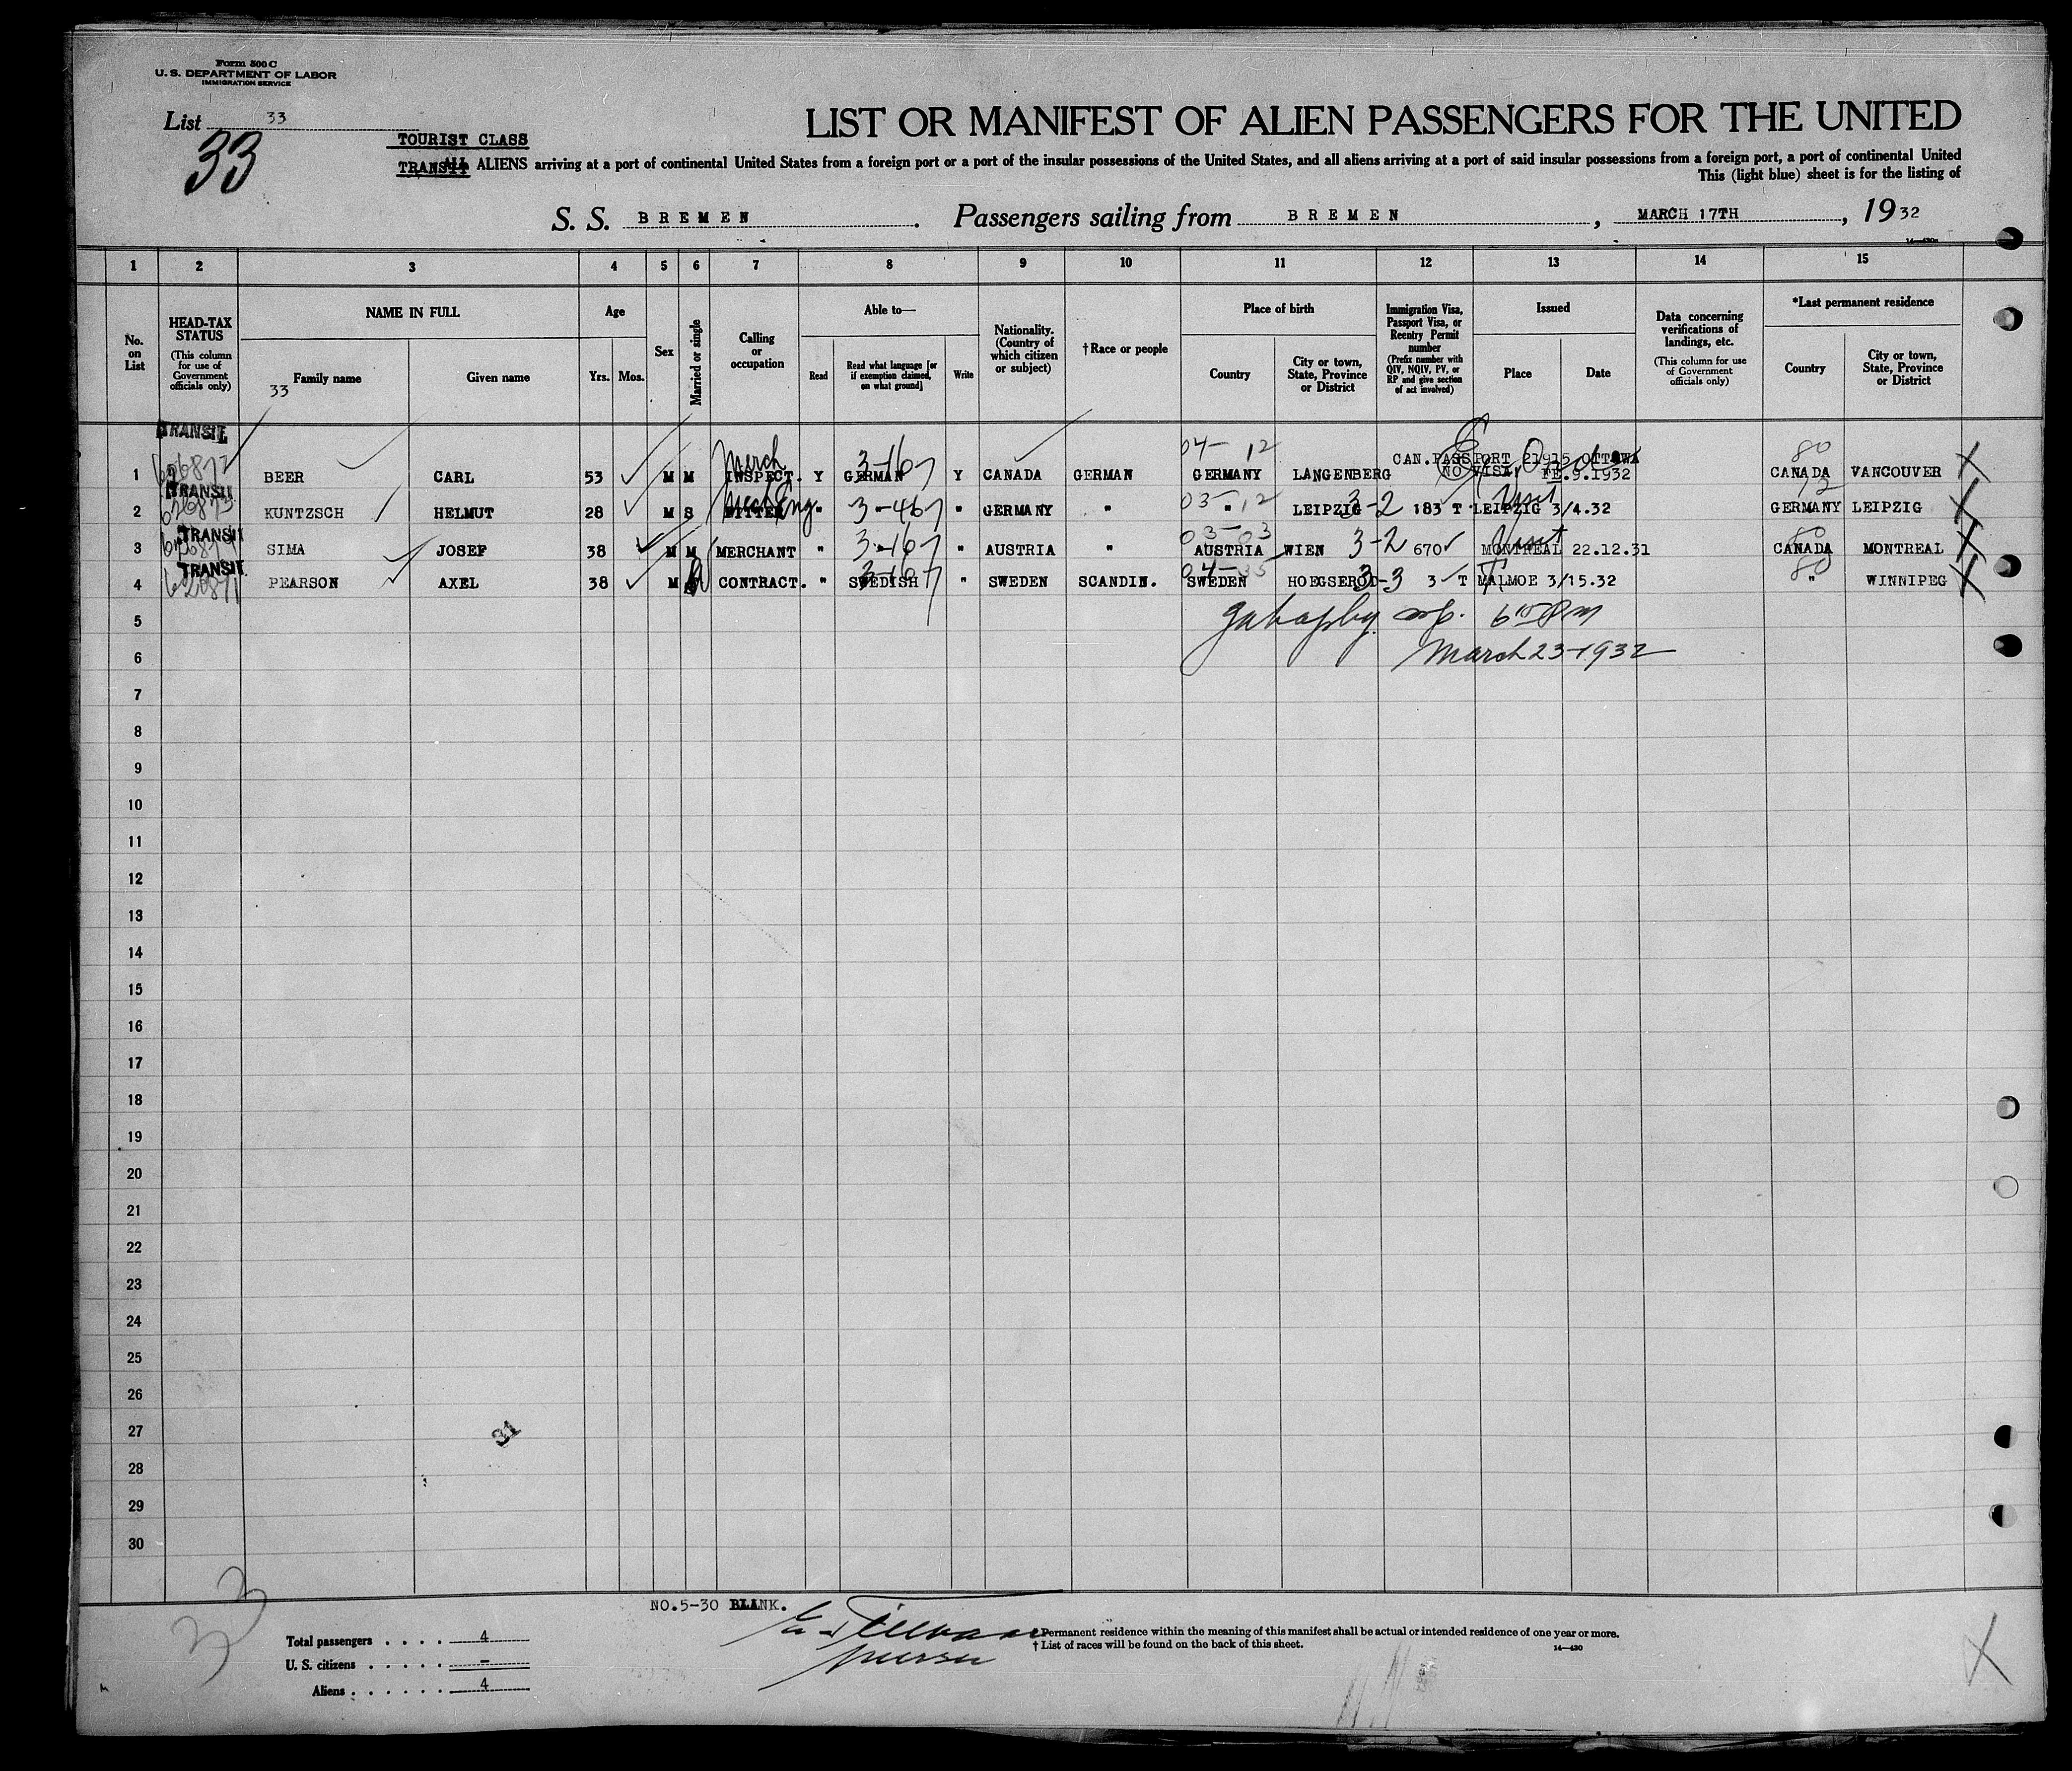 Form 500 C
U. S. DEPARTMENT OF LABOR
IMMIGRATION SERVICE
List 33
33
TOURIST CLASS
TRANSIT
LIST OR MANIFEST OF ALIEN PASSENGERS FOR THE UNITED
ALL ALIENS arriving at a port of continental United States from a foreign port or a port of the insular possessions of the United States, and all aliens arriving at a port of said insular possessions from a foreign port, a port of continental United
This (light blue) sheet is for the listing of
S. S. BREMEN. Passengers sailing from BREMEN, MARCH 17TH, 1932
14—430a
1 2 3 4 5 6 7 8 9 10 11 12 13 14 15
No. on List
HEAD-TAX STATUS (This column for use of Government officials only)
NAME IN FULL
Family name
Given name
33
Age
Yrs. Mos.
Sex
Married or single
Calling or occupation
Able to—
Read
Read what language [or if exemption claimed, on what ground]
Write
Nationality. (Country of which citizen or subject)
†Race or people
Place of birth
Country
City or town, State, Province or District
Immigration Visa, Passport Visa, or Reentry Permit number (Prefix number with QIV, NQIV, PV, or RP and give section of act involved)
Issued
Place
Date
Data concerning verifications of landings, etc. (This column for use of Government officials only)
*Last permanent residence
Country
City or town, State, Province or District
TRANSIT
04- 12 80
CAN.PASSPORT 21915 OTTAWA
1 BEER CARL 53 M M INSPECT. Y GERMAN 3-167 Y CANADA GERMAN GERMANY LANGENBERG NO VISA, FE.9.1932 CANADA VANCOUVER X
TRANSIT 03- 12 12
2 626873 KUNTZSCH HELMUT 28 M S FITTER " 3-467 " GERMANY " " LEIPZIG 3-2 183 T LEIPZIG 3/4.32 GERMANY LEIPZIG X
TRANSIT 03- 03 Visit 80
3 SIMA JOSEF 38 M M MERCHANT " 3-167 " AUSTRIA " AUSTRIA WIEN 3-2 670 MONTREAL 22.12.31 CANADA MONTREAL X
TRANSIT 04- 80
4 PEARSON AXEL 38 M CONTRACT. " SWEDISH 3-167 " SWEDEN SCANDIN. SWEDEN HOEGSEROD 3-3 3 T MALMOE 3/15.32 " WINNIPEG X
5
6 March 23-1932
7
8
9
10
11
12
13
14
15
16
17
18
19
20
21
22
23
24
25
26
27
31
28
29
30
33
NO.5-30 BLANK.
Total passengers . . . . 4
U. S. citizens . . . . . . -
Aliens . . . . . . 4
*Permanent residence within the meaning of this manifest shall be actual or intended residence of one year or more.
†List of races will be found on the back of this sheet.
14—430
X